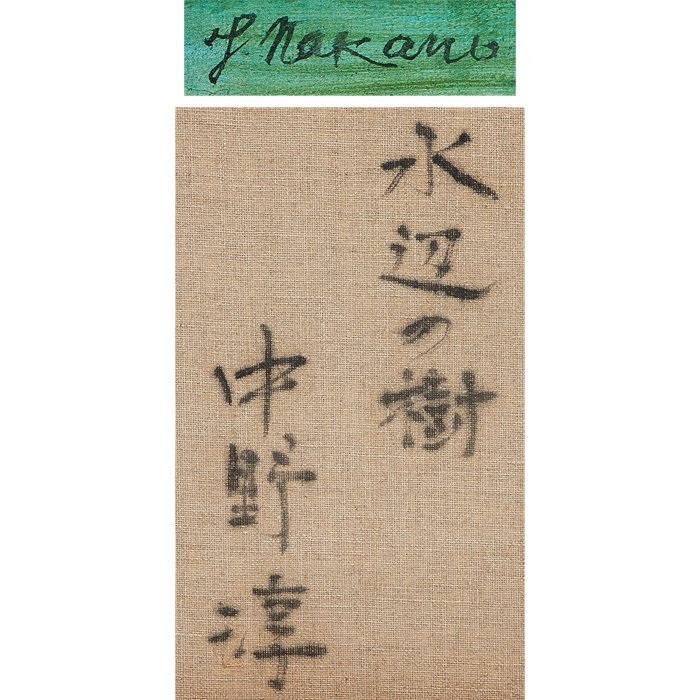 J Nakano
水辺の樹
中野淳